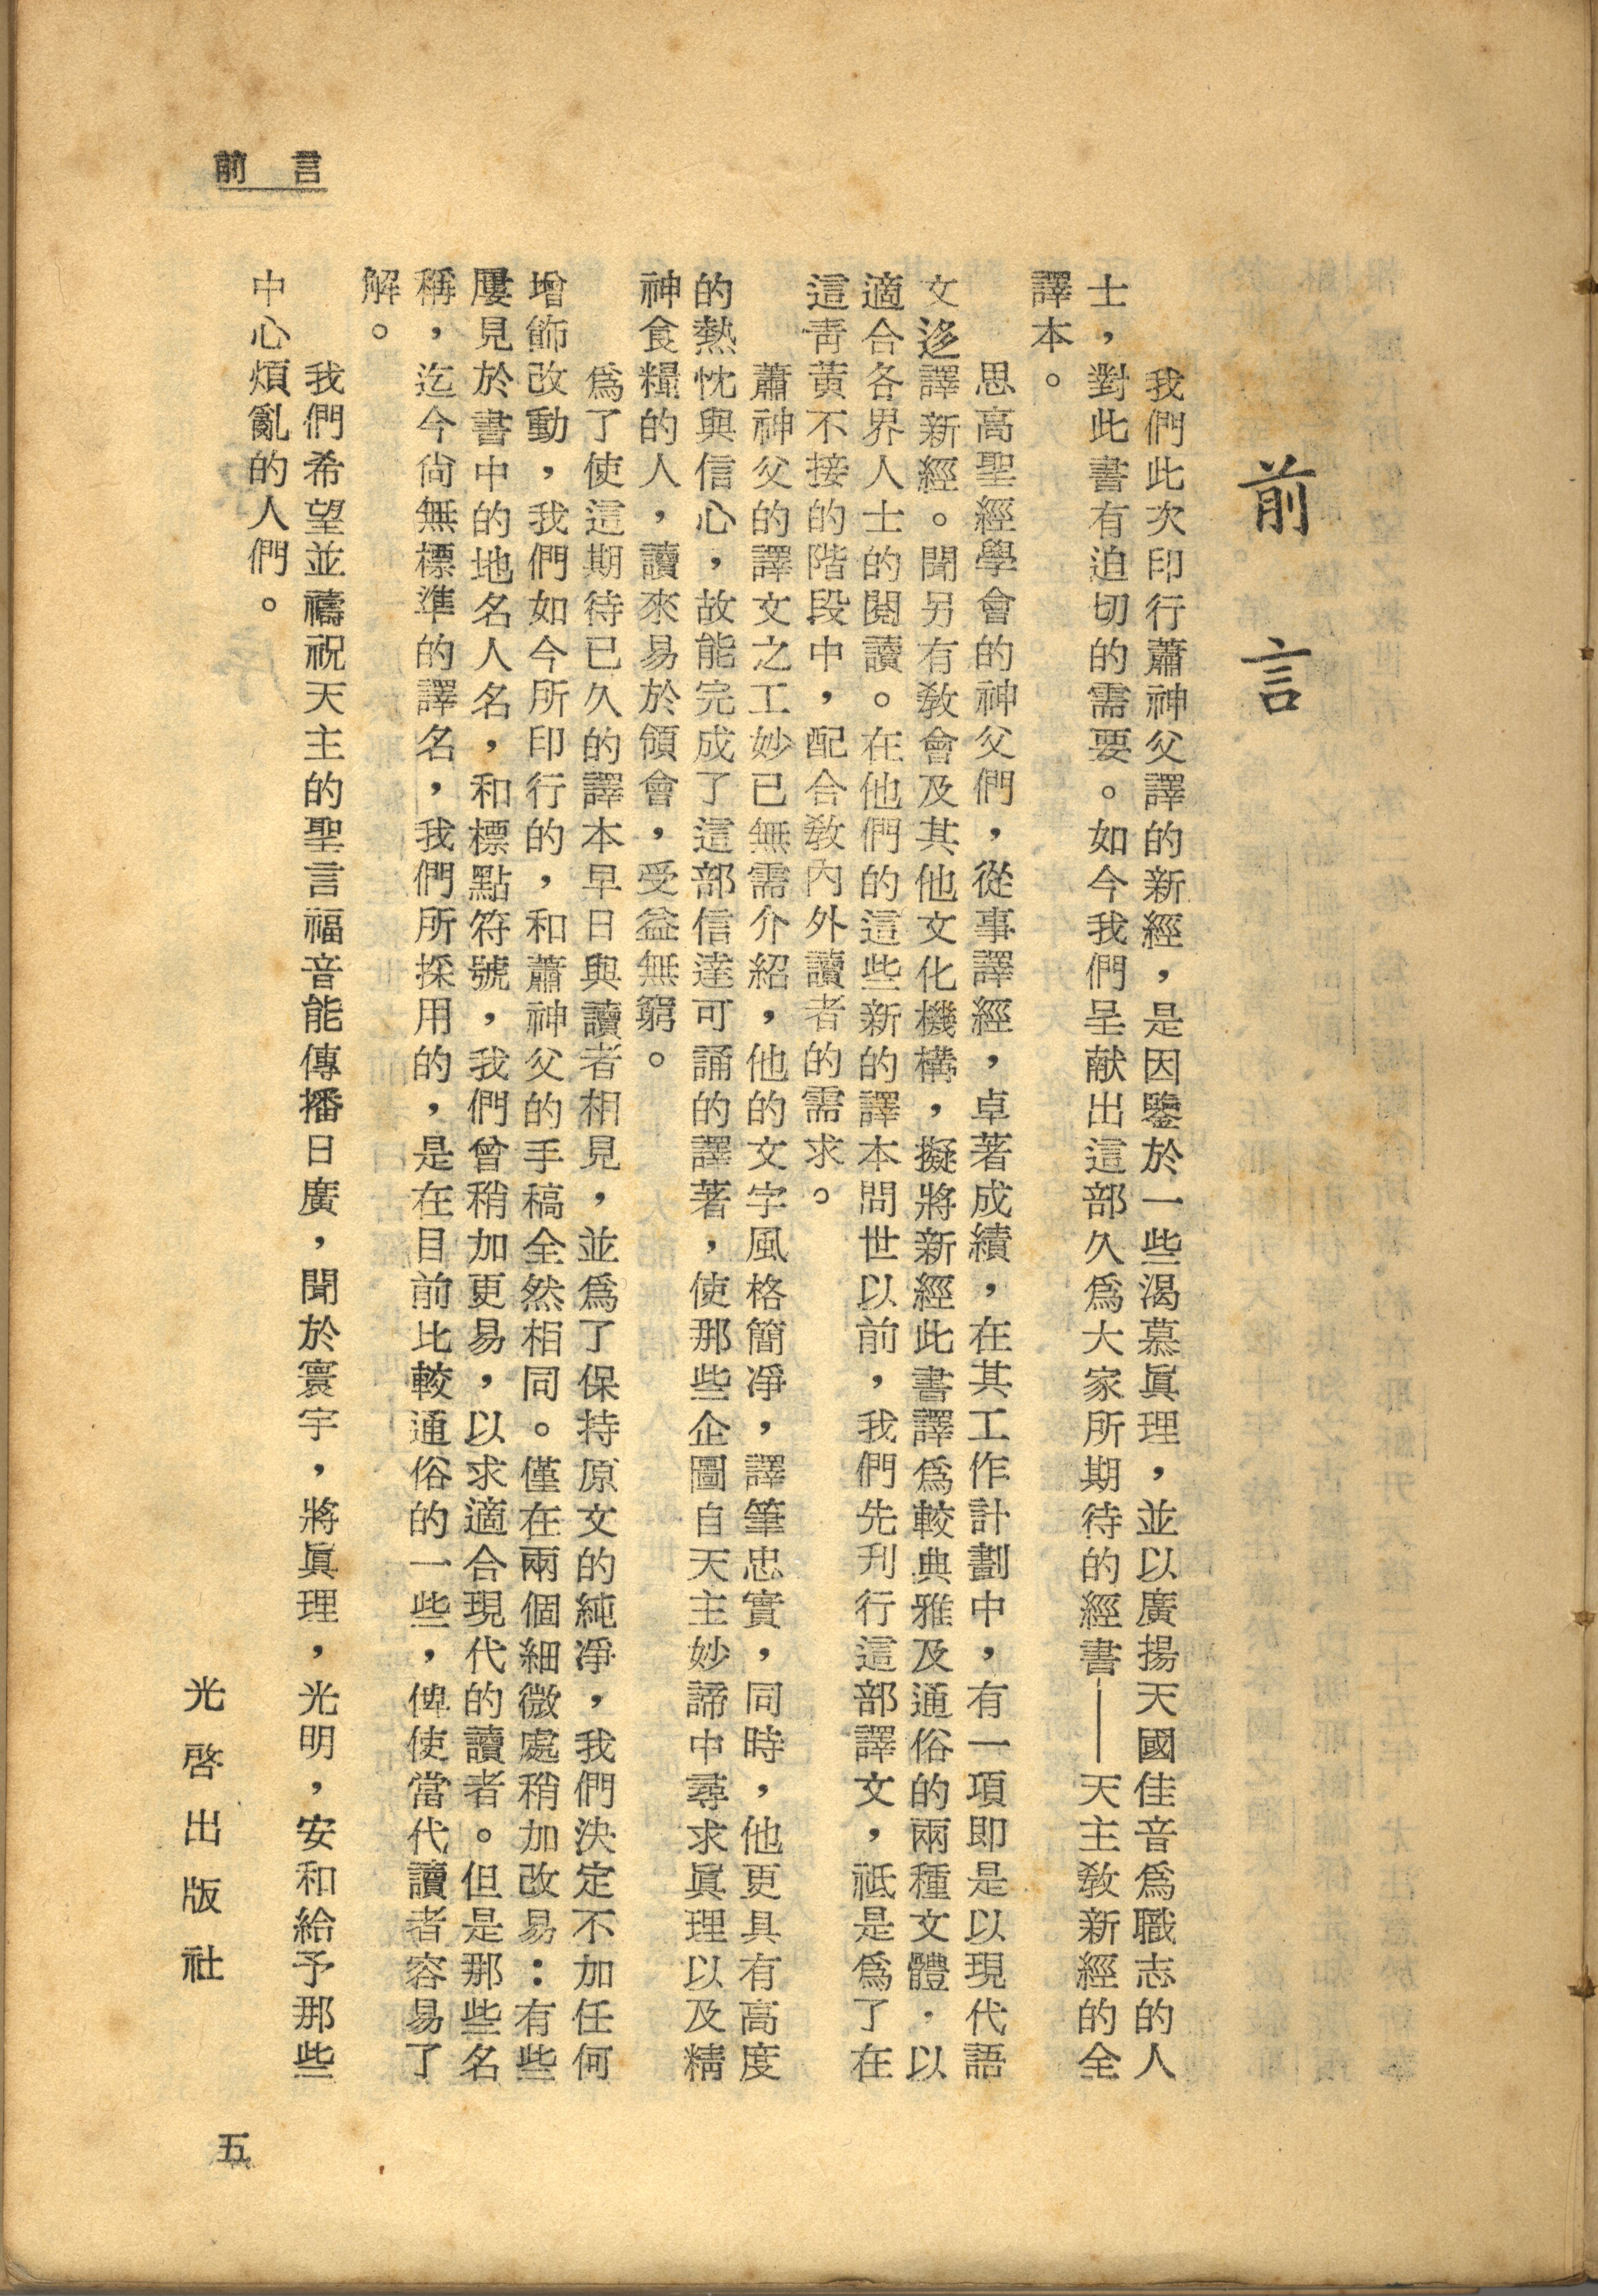 前言
前言
我們此次印行蕭神父譯的新經，是因鑒於一些渴慕眞理，並以廣揚天國佳音爲職志的人
士，對此書有迫切的需要。如今我們呈献出這部久爲大家所期待的經書——天主敎新經的全
譯本。
思高聖經學會的神父們，從事譯經，卓著成績，在其工作計劃中，有一項即是以現代語
文迻譯新經。聞另有敎會及其他文化機構，擬將新經此書譯爲較典雅及通俗的兩種文體，以
適合各界人士的閱讀。在他們的這些新的譯本問世以前，我們先刊行這部譯文，祗是爲了在
這靑黃不接的階段中，配合敎內外讀者的需求。
蕭神父的譯文之工妙已無需介紹，他的文字風格簡凈，譯筆忠實，同時，他更具有高度
的熱忱與信心，故能完成了這部信達可誦的譯著，使那些企圖自天主妙諦中尋求眞理以及精
神食糧的人，讀來易於領會，受益無窮。
爲了使這期待已久的譯本早日與讀者相見，並爲了保持原文的純凈，我們決定不加任何
增飾改動，我們如今所印行的，和蕭神父的手稿全然相同。僅在兩個細微處稍加改易：有些
屢見於書中的地名人名，和標點符號，我們曾稍加更易，以求適合現代的讀者。但是那些名
稱，迄今尙無標準的譯名，我們所採用的，是在目前比較通俗的一些，俾使當代讀者容易了
解。
我們希望並禱祝天主的聖言福音能傳播日廣，聞於寰宇，將眞理，光明，安和給予那些
中心煩亂的人們。
光啓出版社
五